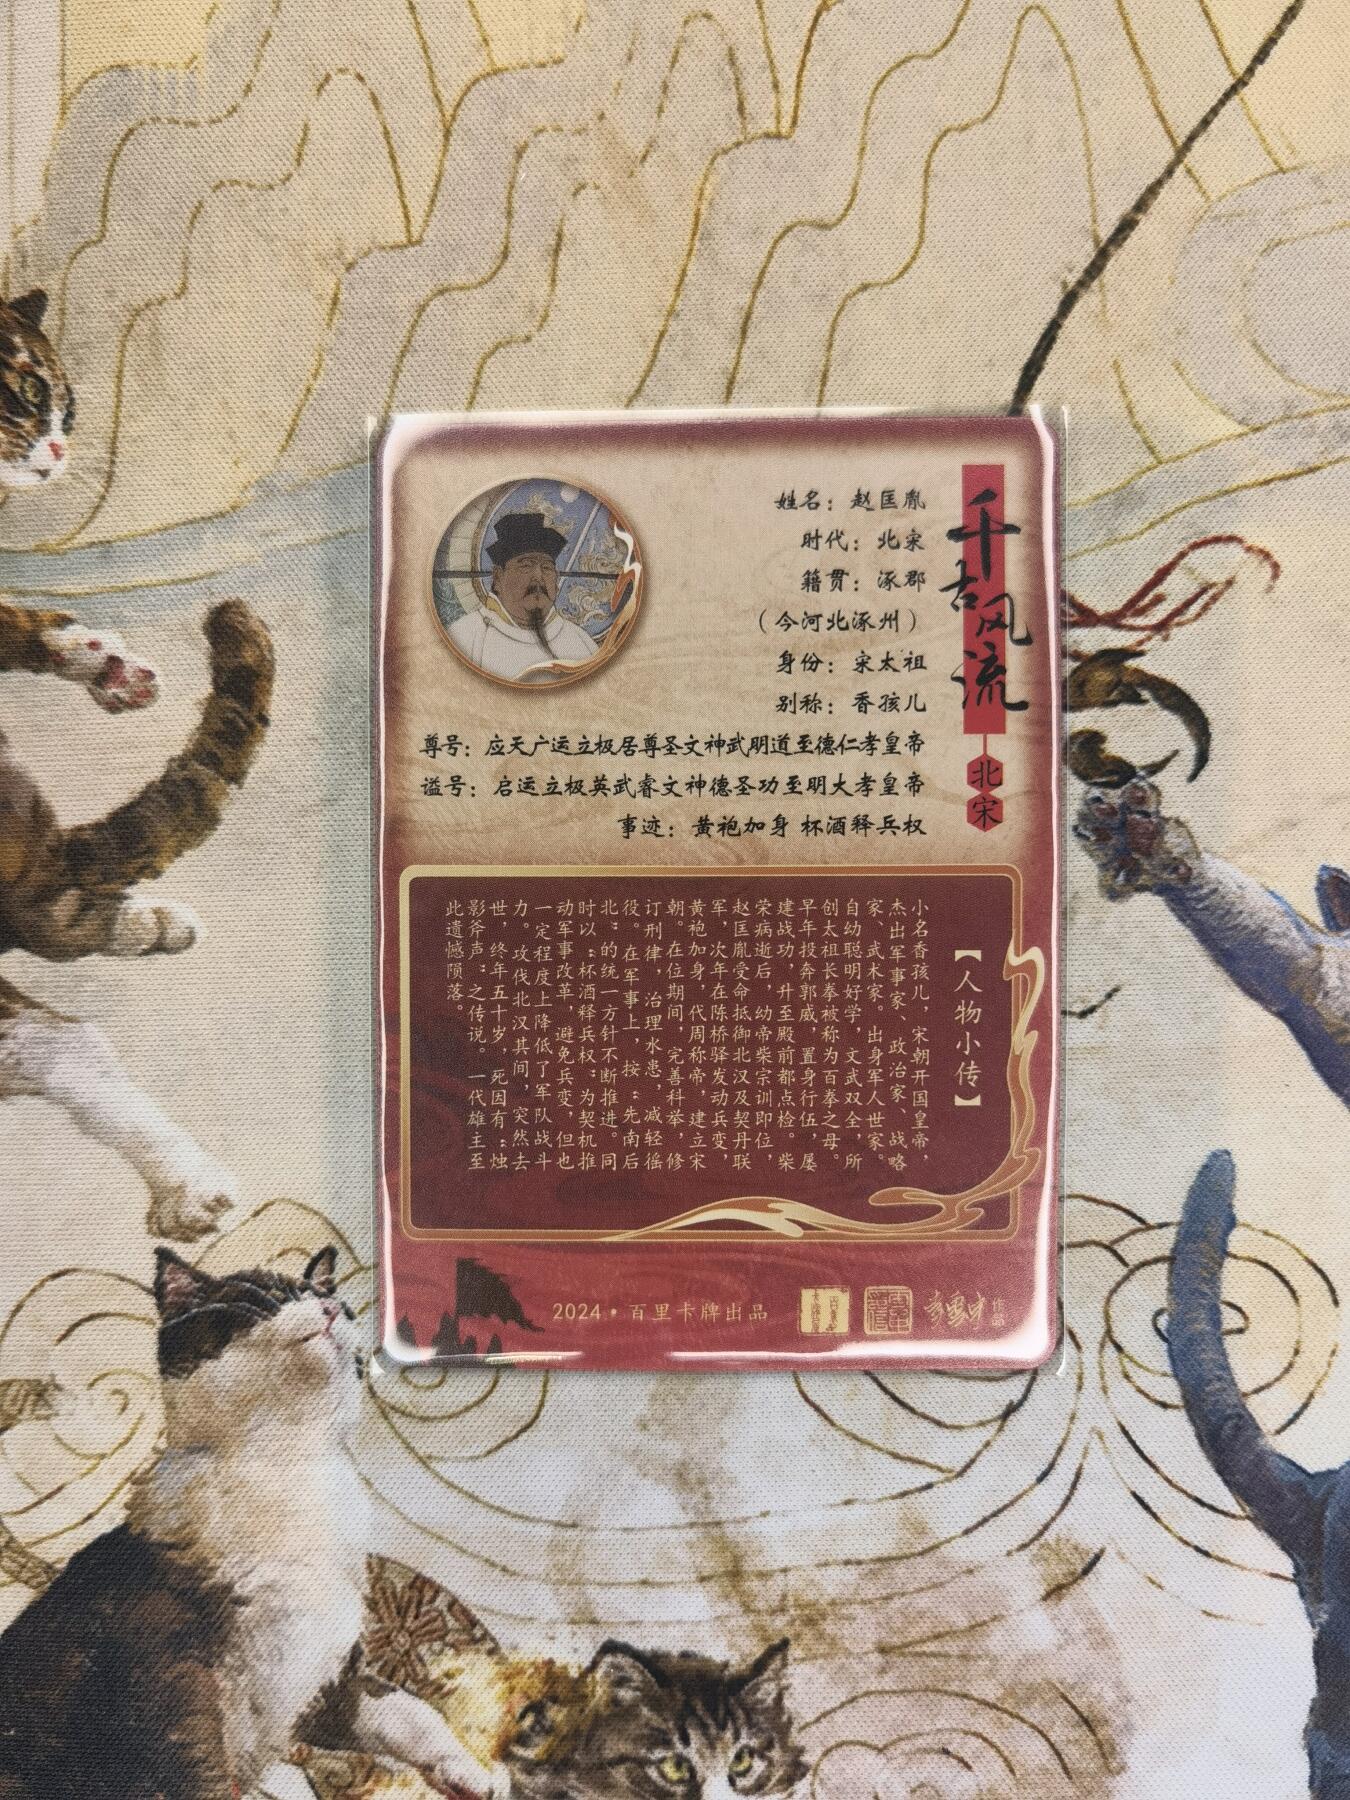 千古风流
北宋
姓名：赵匡胤
时代：北宋
籍贯：涿郡
（今河北涿州）
身份：宋太祖
别称：香孩儿
尊号：应天广运立极居尊圣文神武明道至德仁孝皇帝
谥号：启运立极英武睿文神德圣功至明大孝皇帝
事迹：黄袍加身 杯酒释兵权
【人物小传】
小名香孩儿，宋朝开国皇帝，
杰出军事家、政治家、战略
家、武术家。出身军人世家。
自幼聪明好学，文武双全，所
创太祖长拳被称为百拳之母。
早年投奔郭威，置身行伍，屡
建战功，升至殿前都点检。柴
荣病逝后，幼帝柴宗训即位，
赵匡胤受命抵御北汉及契丹联
军，次年在陈桥驿发动兵变，
黄袍加身，代周称帝，建立宋
朝。在位期间，完善科举，修
订刑律，治理水患，减轻徭
役。在军事上，按“先南后
北”的统一方针不断推进。同
时以“杯酒释兵权”为契机推
动军事改革，避免兵变，但也
一定程度上降低了军队战斗
力。攻伐北汉其间，突然去
世，终年五十岁，死因有“烛
影斧声”之传说。一代雄主至
此遗憾陨落。
2024·百里卡牌出品
作品